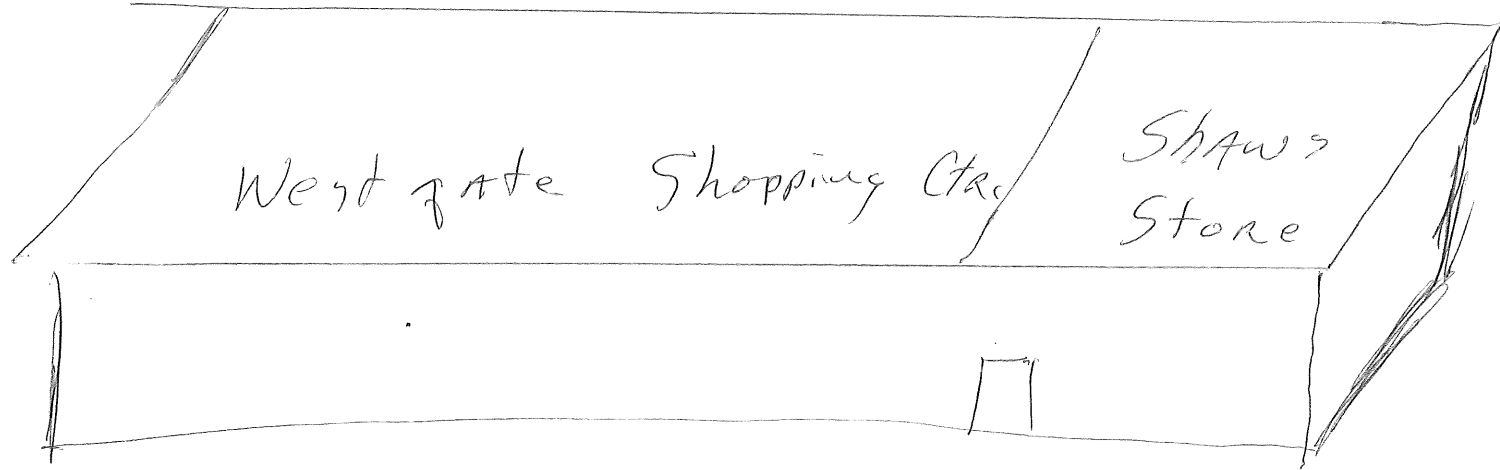 Westgate Shopping Ctr.
Shaws
Store